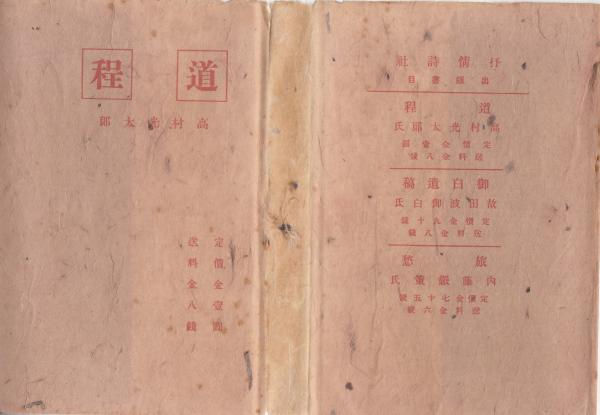 道程
高村光太郎
定價金壹圓
送料金八錢
抒情詩社
出版書目
道程
高村光太郎氏
定價金壹圓
送料金八錢
御白遺稿
故田波御白氏
定價金九十錢
送料金八錢
旅愁
内藤鋠策氏
定價金七十五錢
送料金六錢